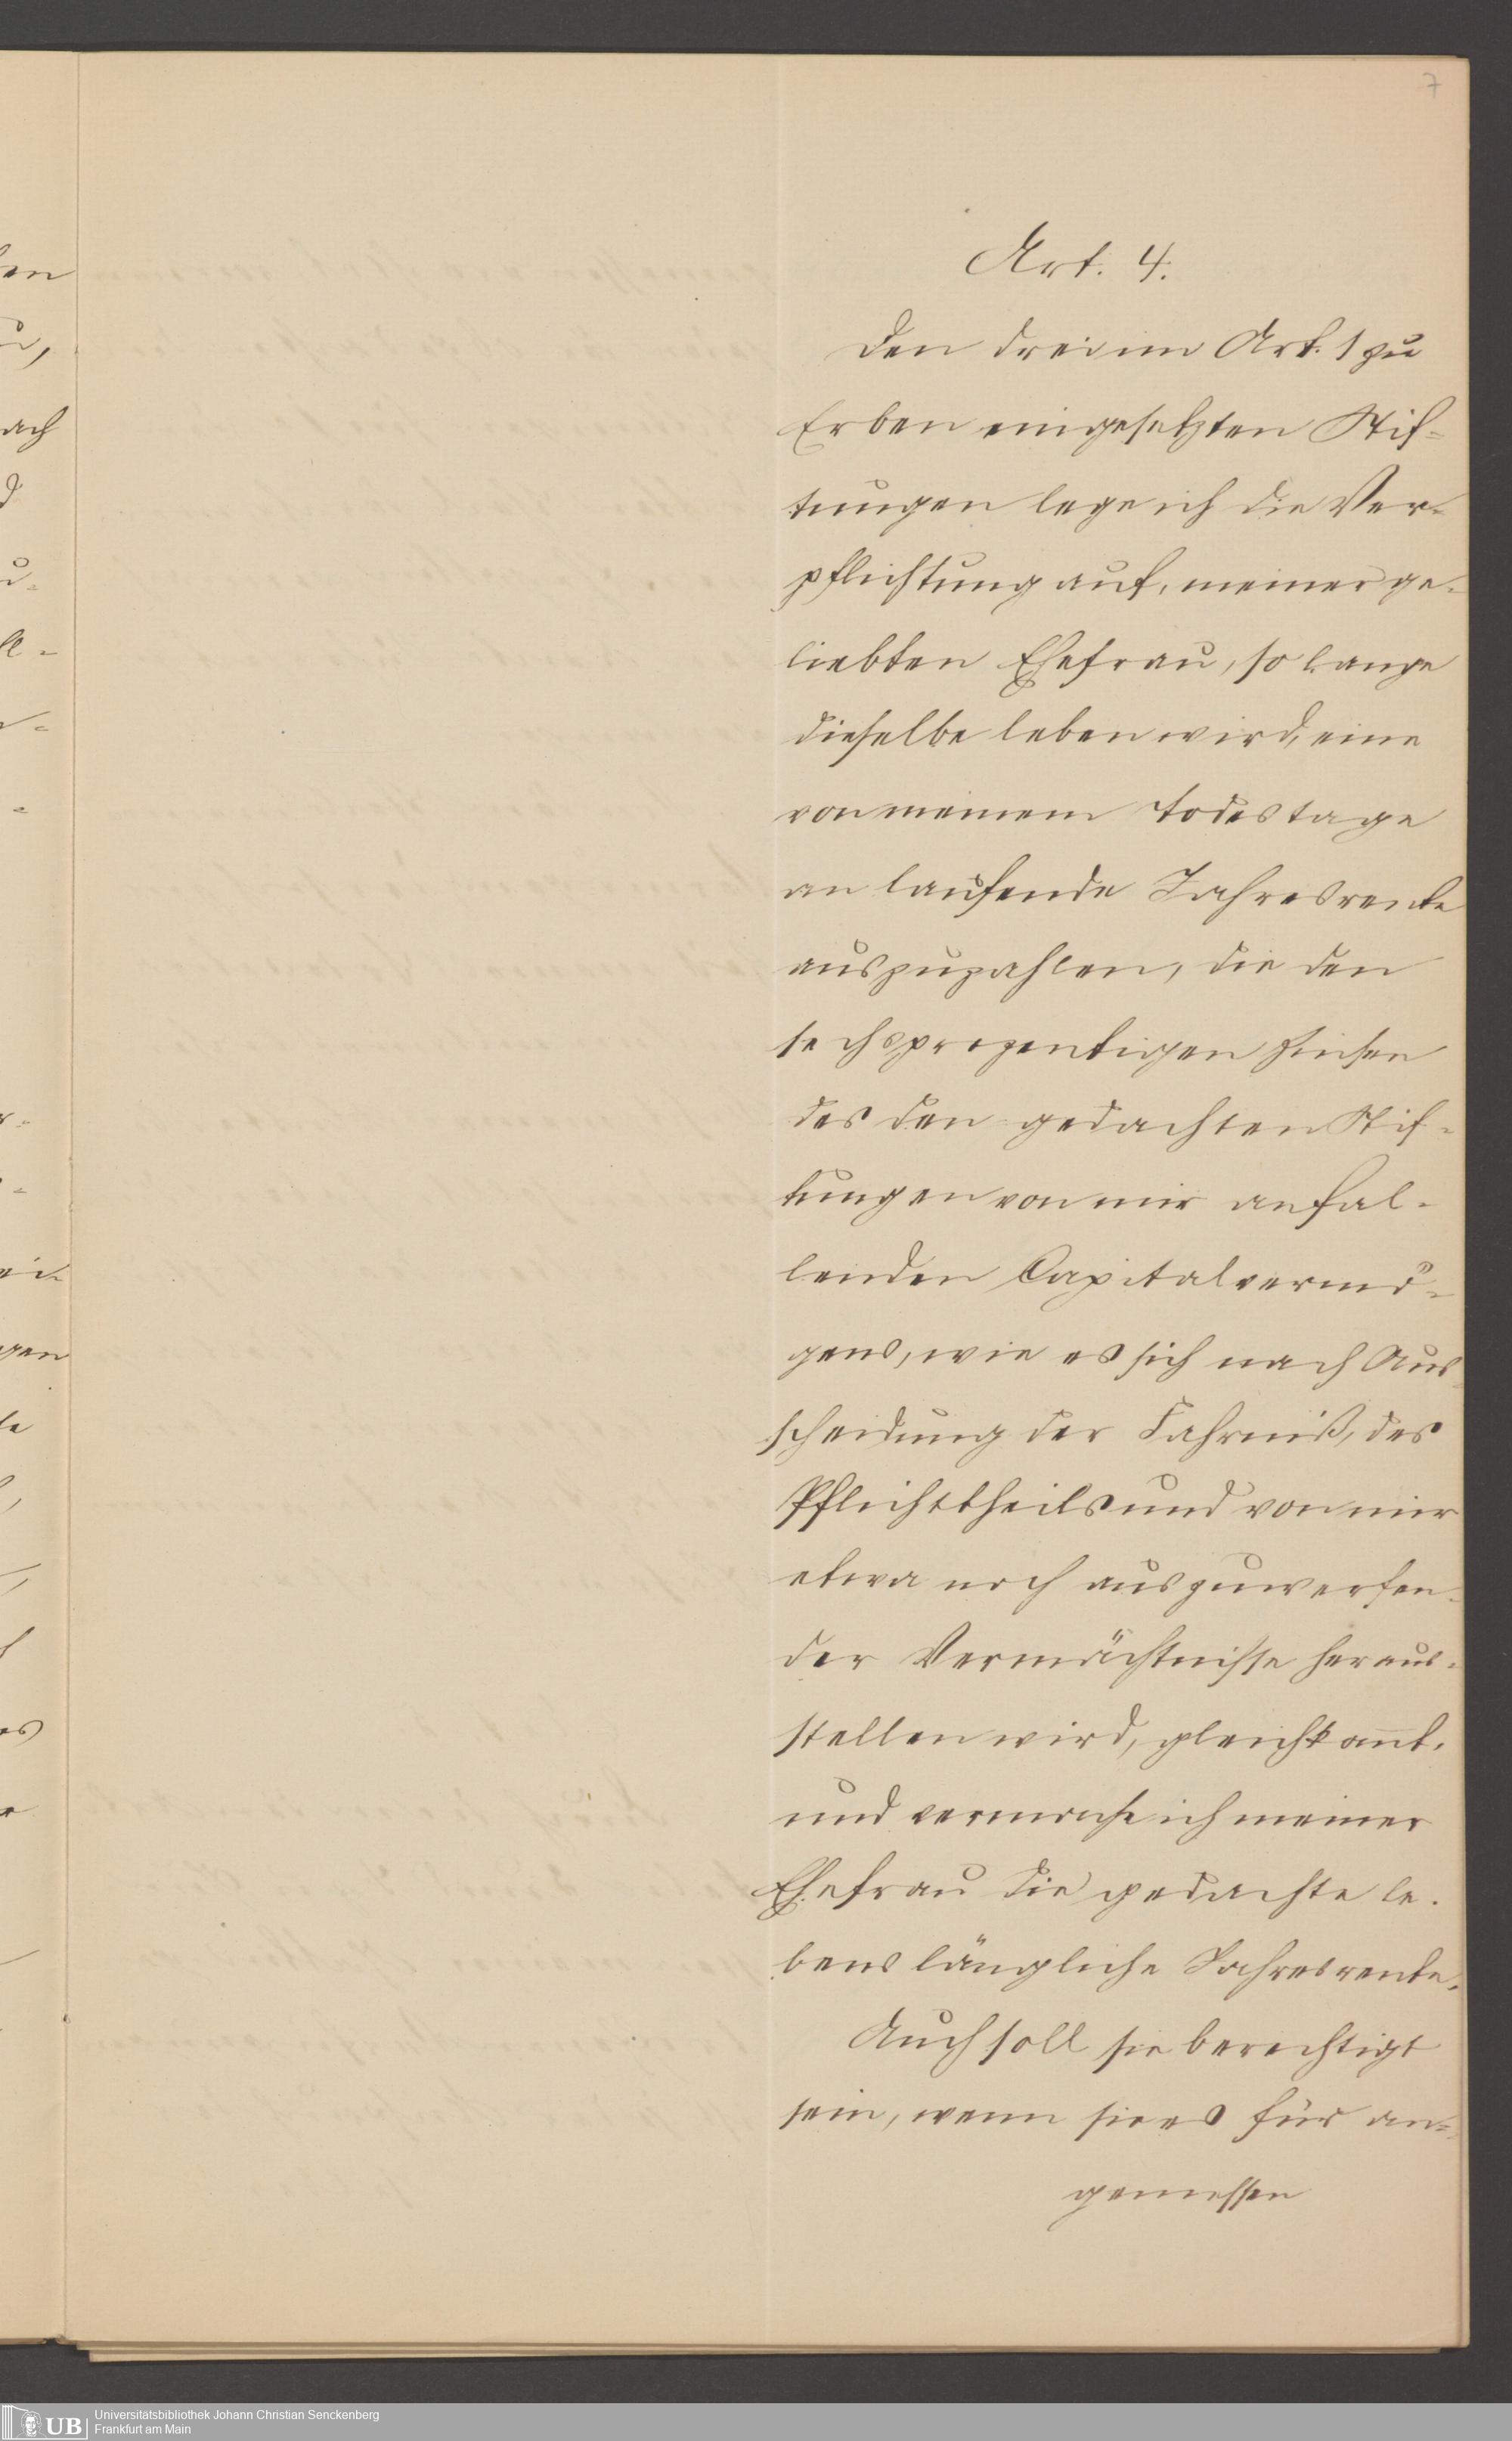 7
Art. 4.
Den drei im Art. 1 zu
Erben eingesetzten Stif-
tungen lege ich die Ver-
pflichtung auf, meiner ge-
liebten Ehefrau, so lange
dieselbe leben wird, eine
von meinem Todestage
an laufende Jahresrente
auszuzahlen, die den
sechsprozentigen Zinsen
des den gedachten Stif-
tungen von mir anfal-
lenden Capitalvermö-
gens, wie es sich nach Aus-
scheidung der Fahrniß, des
Pflichttheils und von mir
etwa noch auszuwerfen-
der Vermächtnisse heraus-
stellen wird, gleichkom̅t.
und vermache ich meiner
Ehefrau die gedachte le-
benslängliche Jahresrente.
Auch soll sie berechtigt
sein, wenn sie es für an-
gemessen
UB
Universitätsbibliothek Johann Christian Senckenberg
Frankfurt am Main